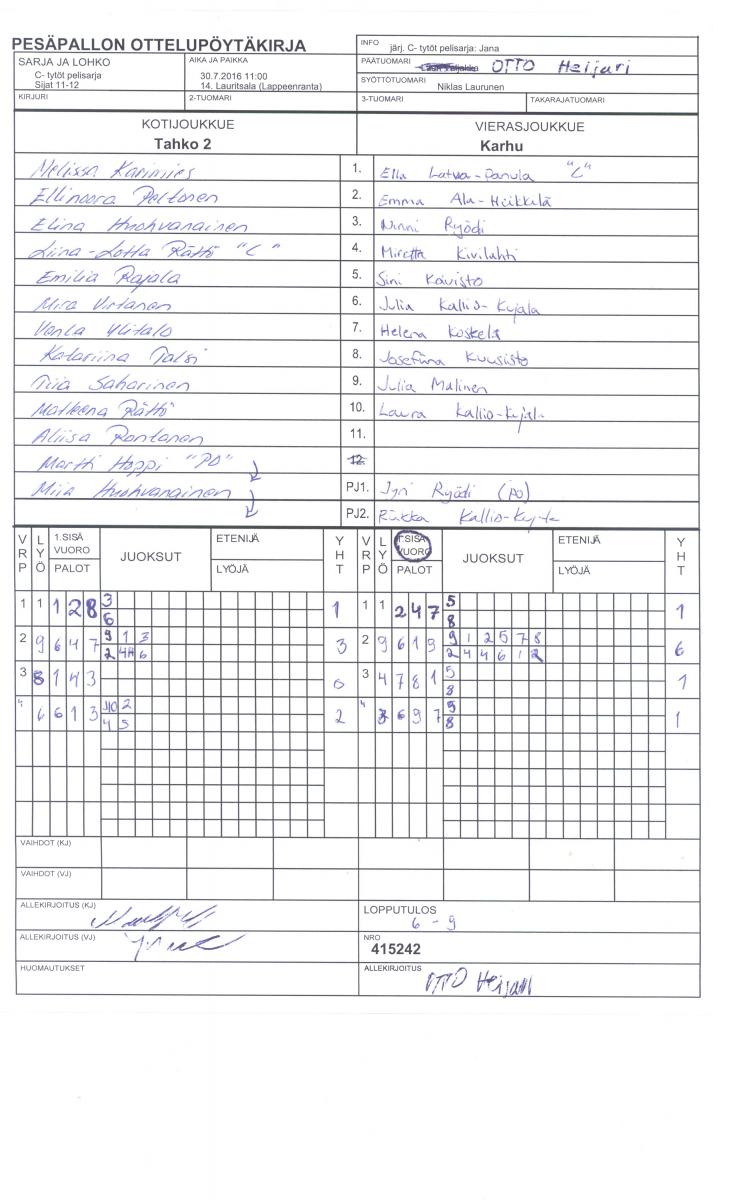 PESÄPALLON OTTELUPÖYTÄKIRJA
INFO järj. C- tytöt pelisarja: Jana
SARJA JA LOHKO
C- tytöt pelisarja
Sijat 11-12
AIKA JA PAIKKA
30.7.2016 11:00
14. Lauritsala (Lappeenranta)
PÄÄTUOMARI OTTO Heijari
SYÖTTÖTUOMARI Niklas Laurunen
KIRJURI 2-TUOMARI 3-TUOMARI TAKARAJATUOMARI
KOTIJOUKKUE VIERASJOUKKUE
Tahko 2 Karhu
Melissa Karimies 1. Ella Latva-Panula "C"
Ellinoora Peltonen 2. Emma Ala-Heikkilä
Elina Huohvanainen 3. Ninni Ryödi
Liina-Lotta Rättö "C" 4. Miretta Kivilahti
Emilia Rajala 5. Sini Koivisto
Mira Virtanen 6. Julia Kallio-Kujala
Venla Ylitalo 7. Helena Koskela
Katariina Talsi 8. Josefiina Kuusisto
Tiia Saharinen 9. Julia Malinen
Matleena Rättö 10. Laura Kallio-Kujala
Aliisa Rantanen 11.
Martti Hoppi "PO" 12.
Miia Huohvanainen PJ1. Jyri Ryödi (PO)
PJ2. Riikka Kallio-Kujala
VRP LYÖ 1.SISÄ VUORO PALOT JUOKSUT ETENIJÄ LYÖJÄ YHT VRP LYÖ 1.SISÄ VUORO PALOT JUOKSUT ETENIJÄ LYÖJÄ YHT
1 1 1 2 8 3 1 1 1 2 4 7 5 1
6 8
2 9 6 4 7 9 1 3 3 2 9 6 1 9 9 1 2 5 7 8 6
2 4 6 2 4 4 6 1 2
3 8 1 4 3 0 3 4 7 8 1 5 1
8
" 6 6 1 3 10 2 2 " 6 9 7 9 1
4 5 8
VAIHDOT (KJ)
VAIHDOT (VJ)
ALLEKIRJOITUS (KJ) LOPPUTULOS
6 - 9
ALLEKIRJOITUS (VJ) NRO
415242
HUOMAUTUKSET ALLEKIRJOITUS
OTTO Heijari